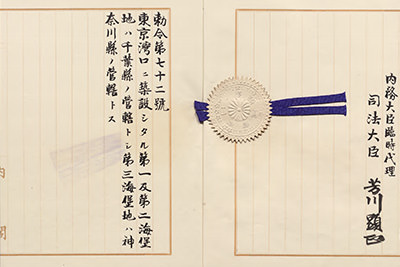 内務大臣臨時代理
司法大臣 芳川顯正
勅令第七十二號
東京灣口ニ築設シタル第一及第二海堡
地ハ千葉縣ノ管轄トシ第三海堡地ハ神
奈川縣ノ管轄トス
内閣